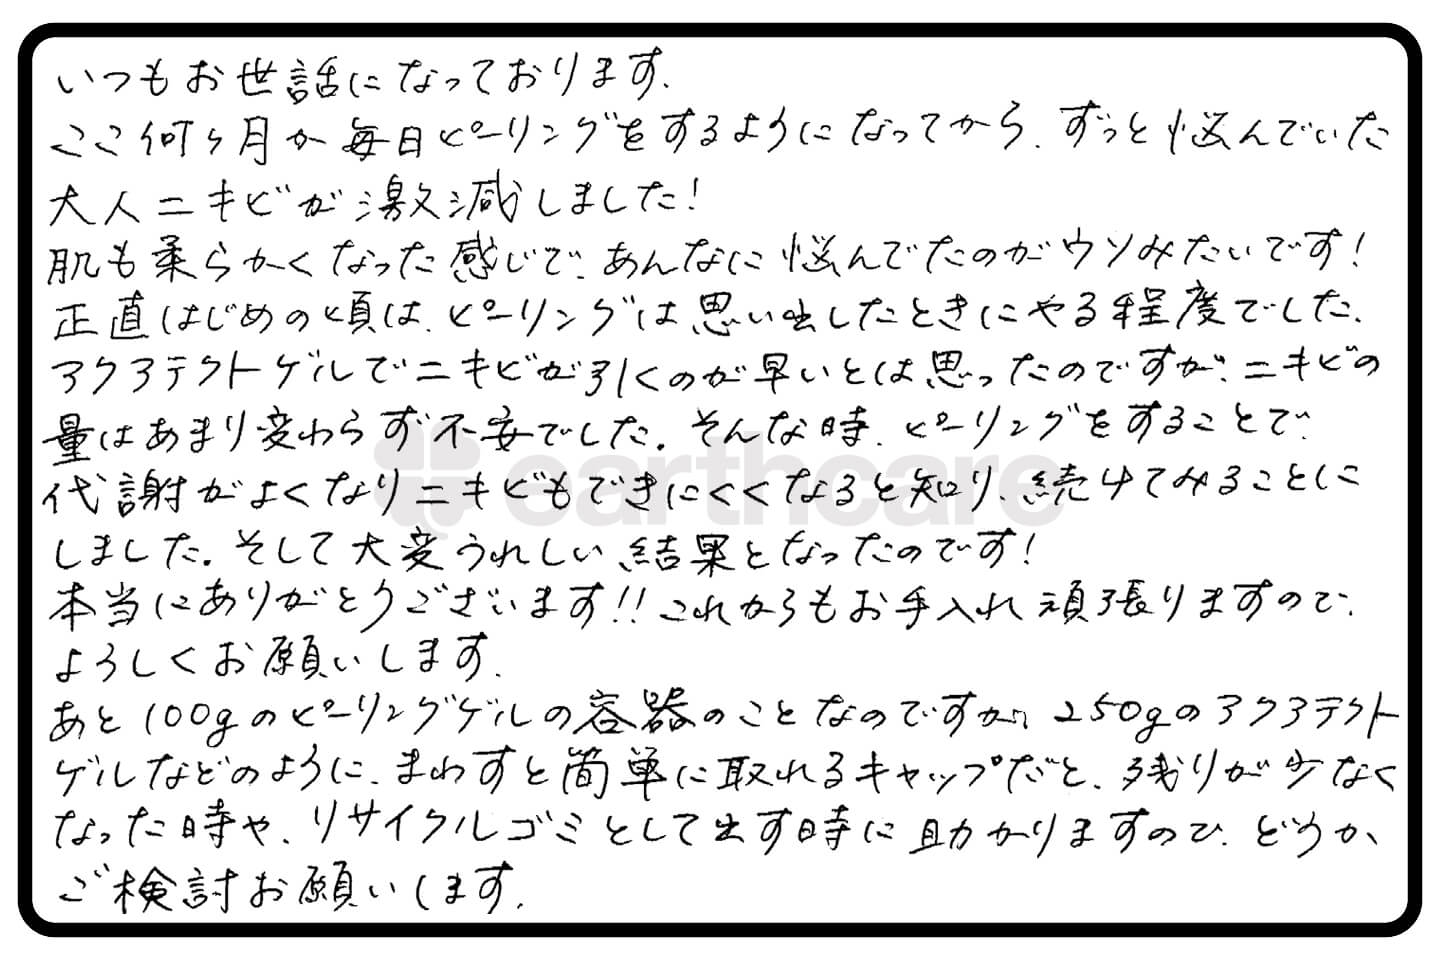 いつもお世話になっております.
ここ何ヶ月か毎日ピーリングをするようになってから、ずっと悩んでいた
大人ニキビが激減しました!
肌も柔らかくなった感じで、あんなに悩んでたのがウソみたいです!
正直はじめの頃は、ピーリングは思い出したときにやる程度でした.
アクアテクトゲルでニキビが引くのが早いとは思ったのですが、ニキビの
量はあまり変わらず不安でした。そんな時、ピーリングをすることで、
代謝がよくなりニキビもできにくくなると知り、続けてみることに
しました。そして大変うれしい結果となったのです!
本当にありがとうございます!!これからもお手入れ頑張りますので、
よろしくお願いします.
あと100gのピーリングゲルの容器のことなのですが、250gのアクアテクト
ゲルなどのように、まわすと簡単に取れるキャップだと、残りが少なく
なった時や、リサイクルゴミとして出す時に助かりますので、どうか
ご検討お願いします.
earthcare